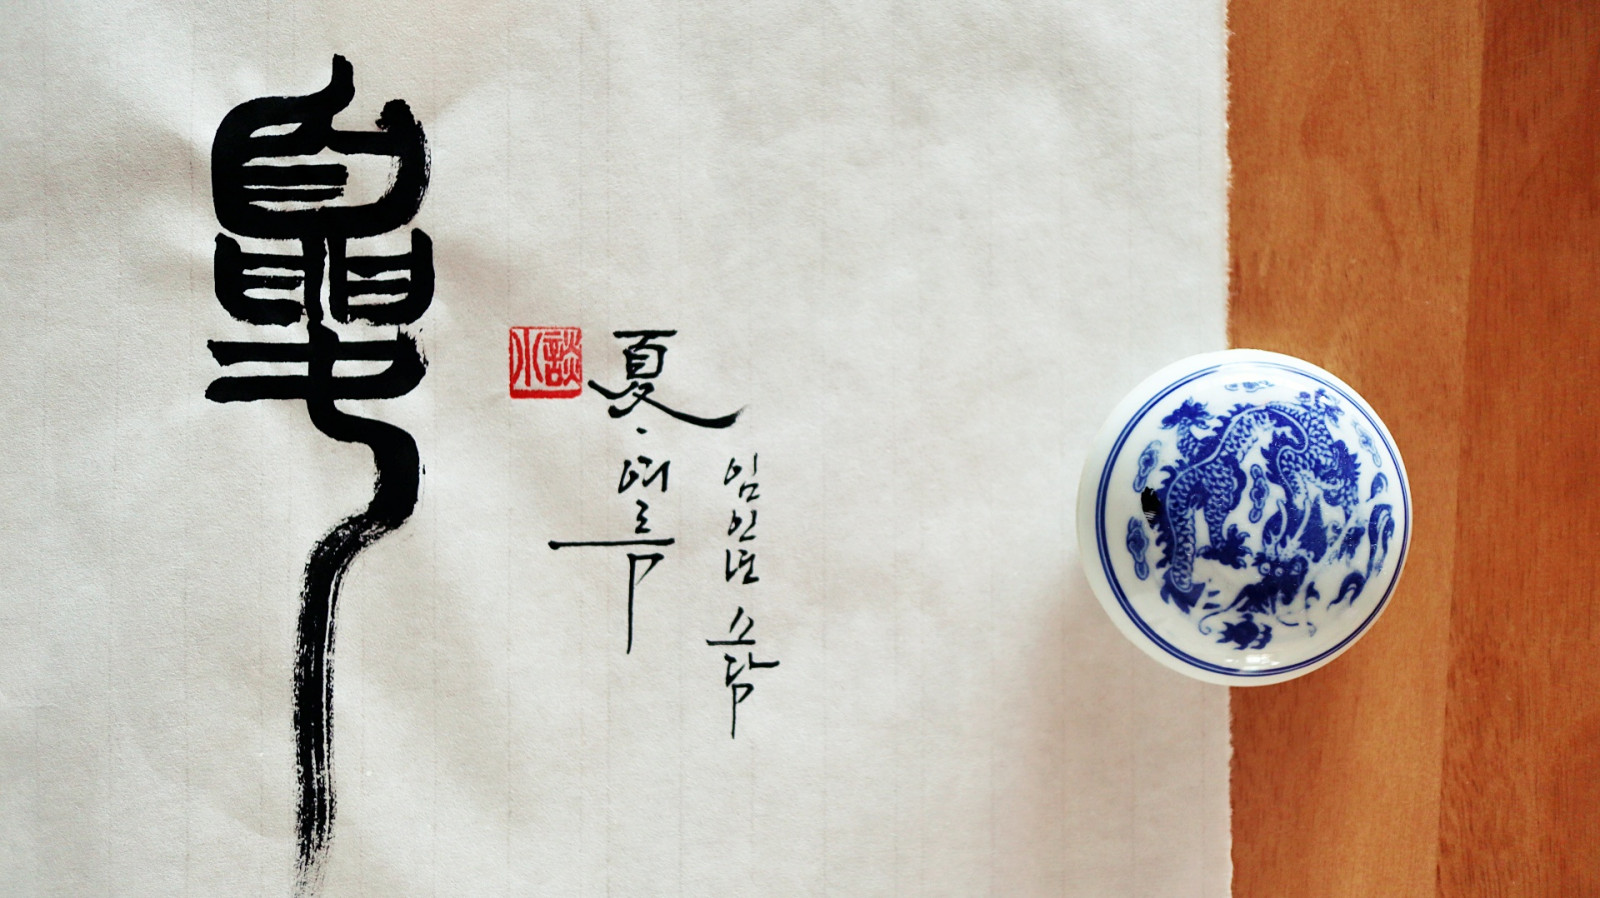 夏
夏·여름
임인년 소담
小談